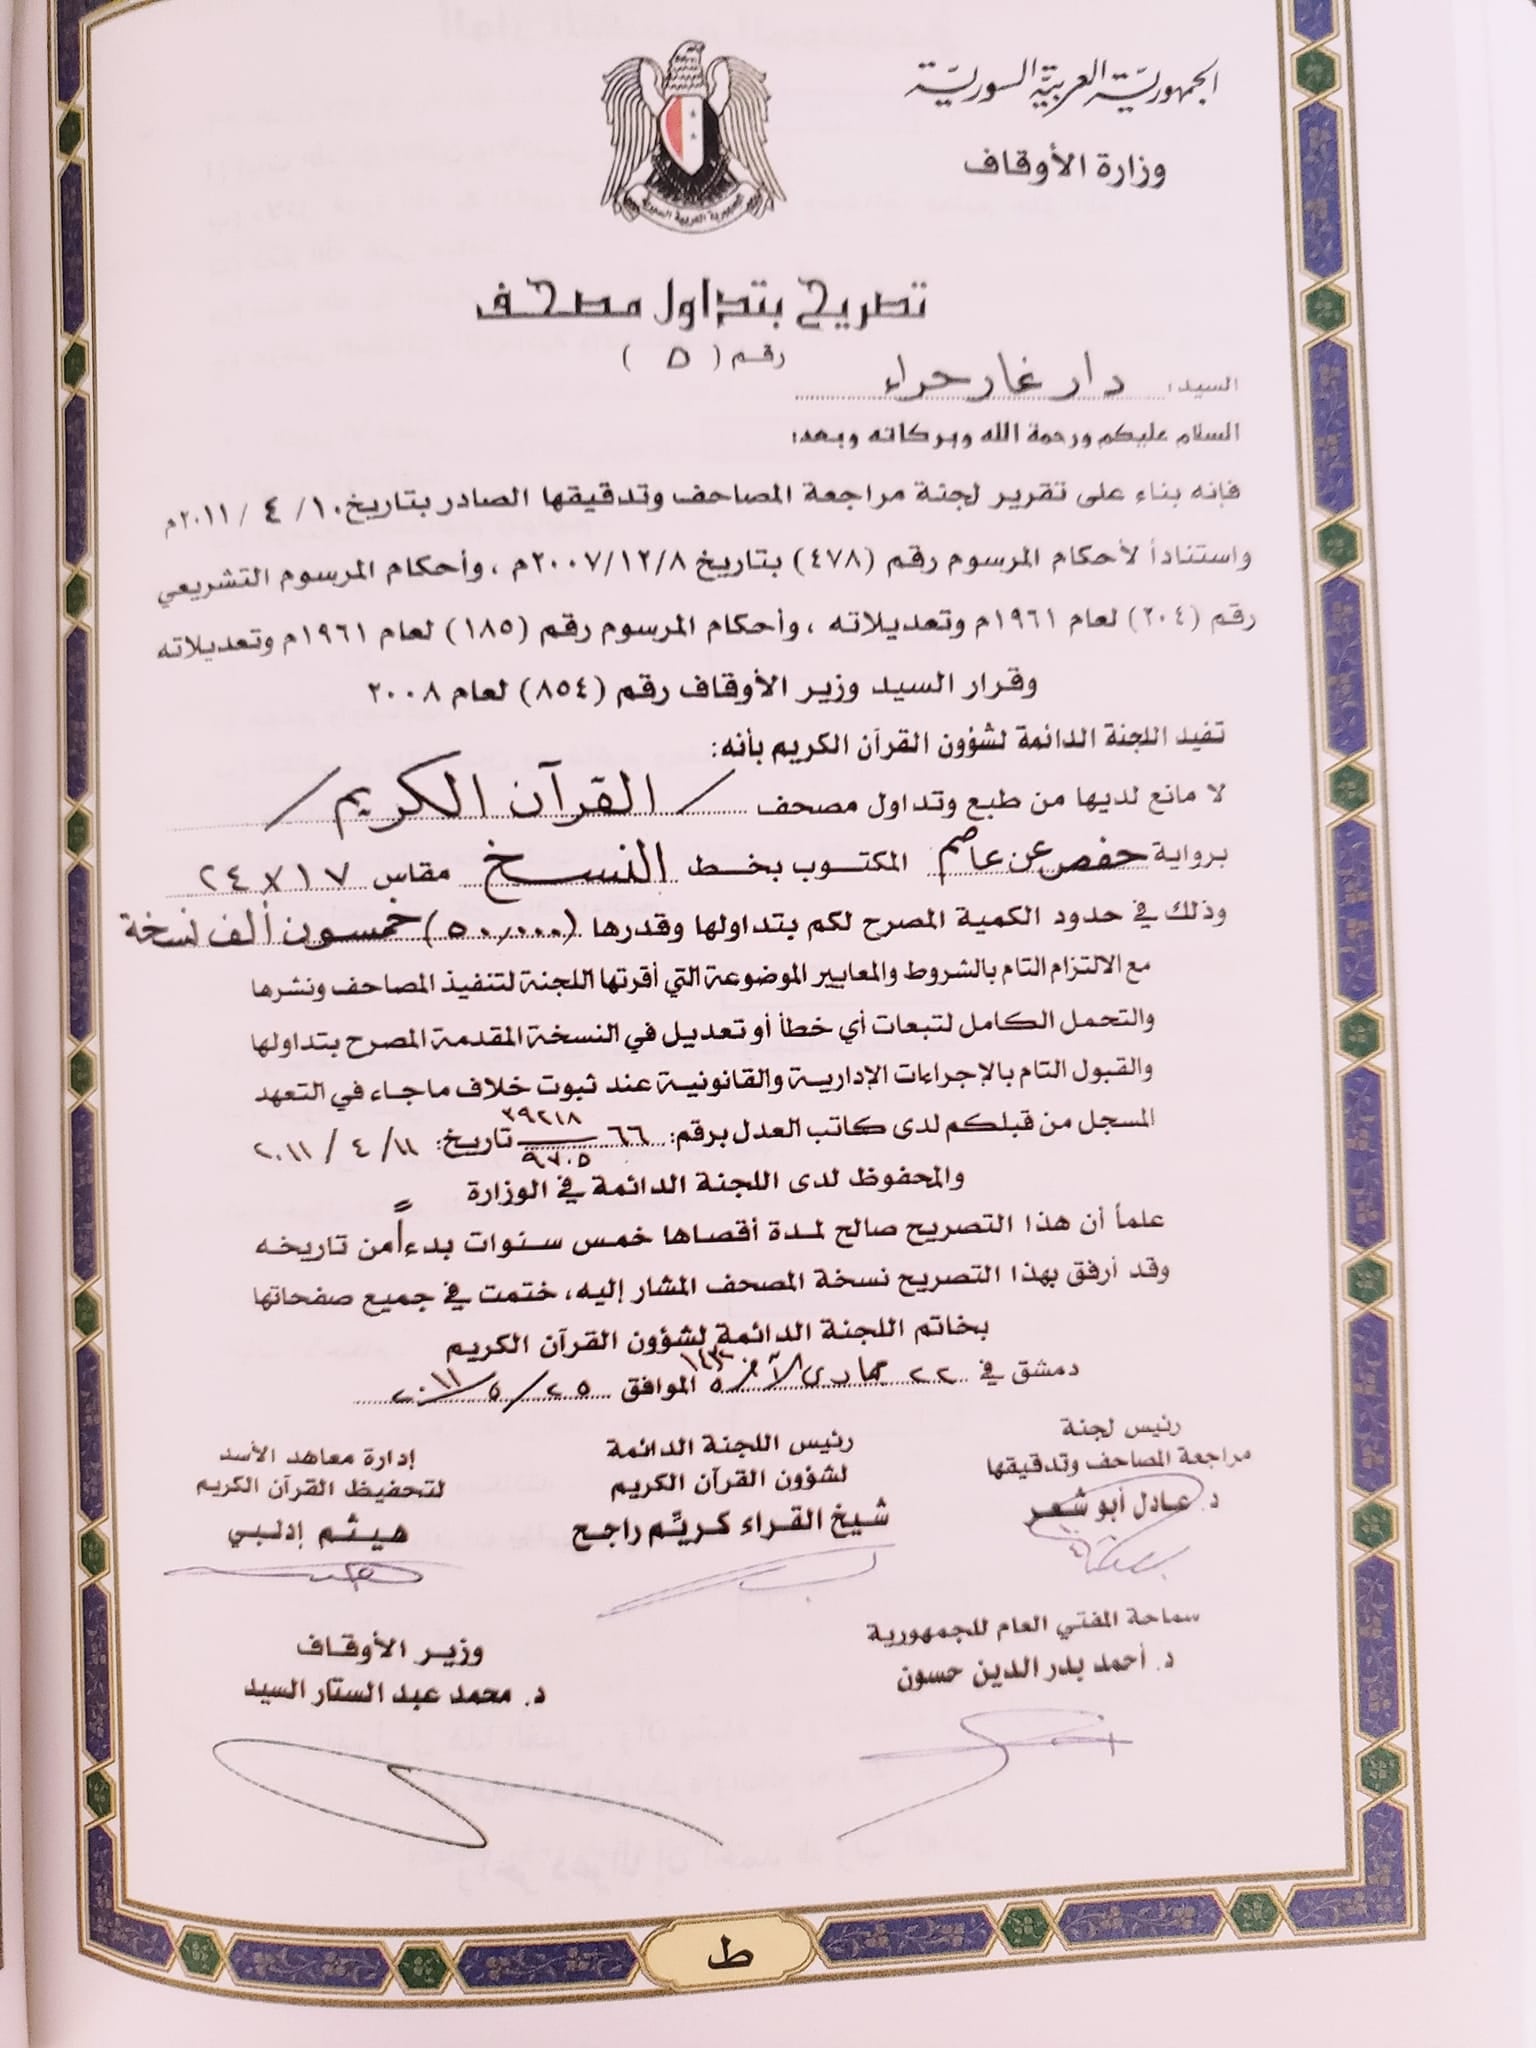 الجمهورية العربية السورية
وزارة الأوقاف
الجمهورية العربية السورية
تصريح بتداول مصحف
رقم ( ٥ )
السيد: دار غار حراء
السلام عليكم ورحمة الله وبركاته وبعد:
فإنه بناء على تقرير لجنة مراجعة المصاحف وتدقيقها الصادر بتاريخ ١٠ / ٤ / ٢٠١١م
واستناداً لأحكام المرسوم رقم (٤٧٨) بتاريخ ٢٠٠٧/١٢/٨م ، وأحكام المرسوم التشريعي
رقم (٢٠٤) لعام ١٩٦١م وتعديلاته ، وأحكام المرسوم رقم (١٨٥) لعام ١٩٦١م وتعديلاته
وقرار السيد وزير الأوقاف رقم (٨٥٤) لعام ٢٠٠٨
تفيد اللجنة الدائمة لشؤون القرآن الكريم بأنه:
لا مانع لديها من طبع وتداول مصحف / القرآن الكريم /
برواية حفص عن عاصم المكتوب بخط النسخ مقاس ١٧ × ٢٤
وذلك في حدود الكمية المصرح لكم بتداولها وقدرها (٥٠,٠٠٠) خمسون ألف نسخة
مع الالتزام التام بالشروط والمعايير الموضوعة التي أقرتها اللجنة لتنفيذ المصاحف ونشرها
والتحمل الكامل لتبعات أي خطأ أو تعديل في النسخة المقدمة المصرح بتداولها
والقبول التام بالإجراءات الإدارية والقانونية عند ثبوت خلاف ما جاء في التعهد
المسجل من قبلكم لدى كاتب العدل برقم: ٦٦ تاريخ: ١١ / ٤ / ٢٠١١
والمحفوظ لدى اللجنة الدائمة في الوزارة
علماً أن هذا التصريح صالح لمدة أقصاها خمس سنوات بدءاً من تاريخه
وقد أرفق بهذا التصريح نسخة المصحف المشار إليه، ختمت في جميع صفحاتها
بخاتم اللجنة الدائمة لشؤون القرآن الكريم
دمشق في ٢٢ جمادى الآخرة الموافق ٢٥ / ٥ / ٢٠١١
رئيس لجنة
مراجعة المصاحف وتدقيقها
د. عادل أبو شعر
رئيس اللجنة الدائمة
لشؤون القرآن الكريم
شيخ القراء كريّم راجح
إدارة معاهد الأسد
لتحفيظ القرآن الكريم
هيثم إدلبي
سماحة المفتي العام للجمهورية
د. أحمد بدر الدين حسون
وزير الأوقاف
د. محمد عبد الستار السيد
ط